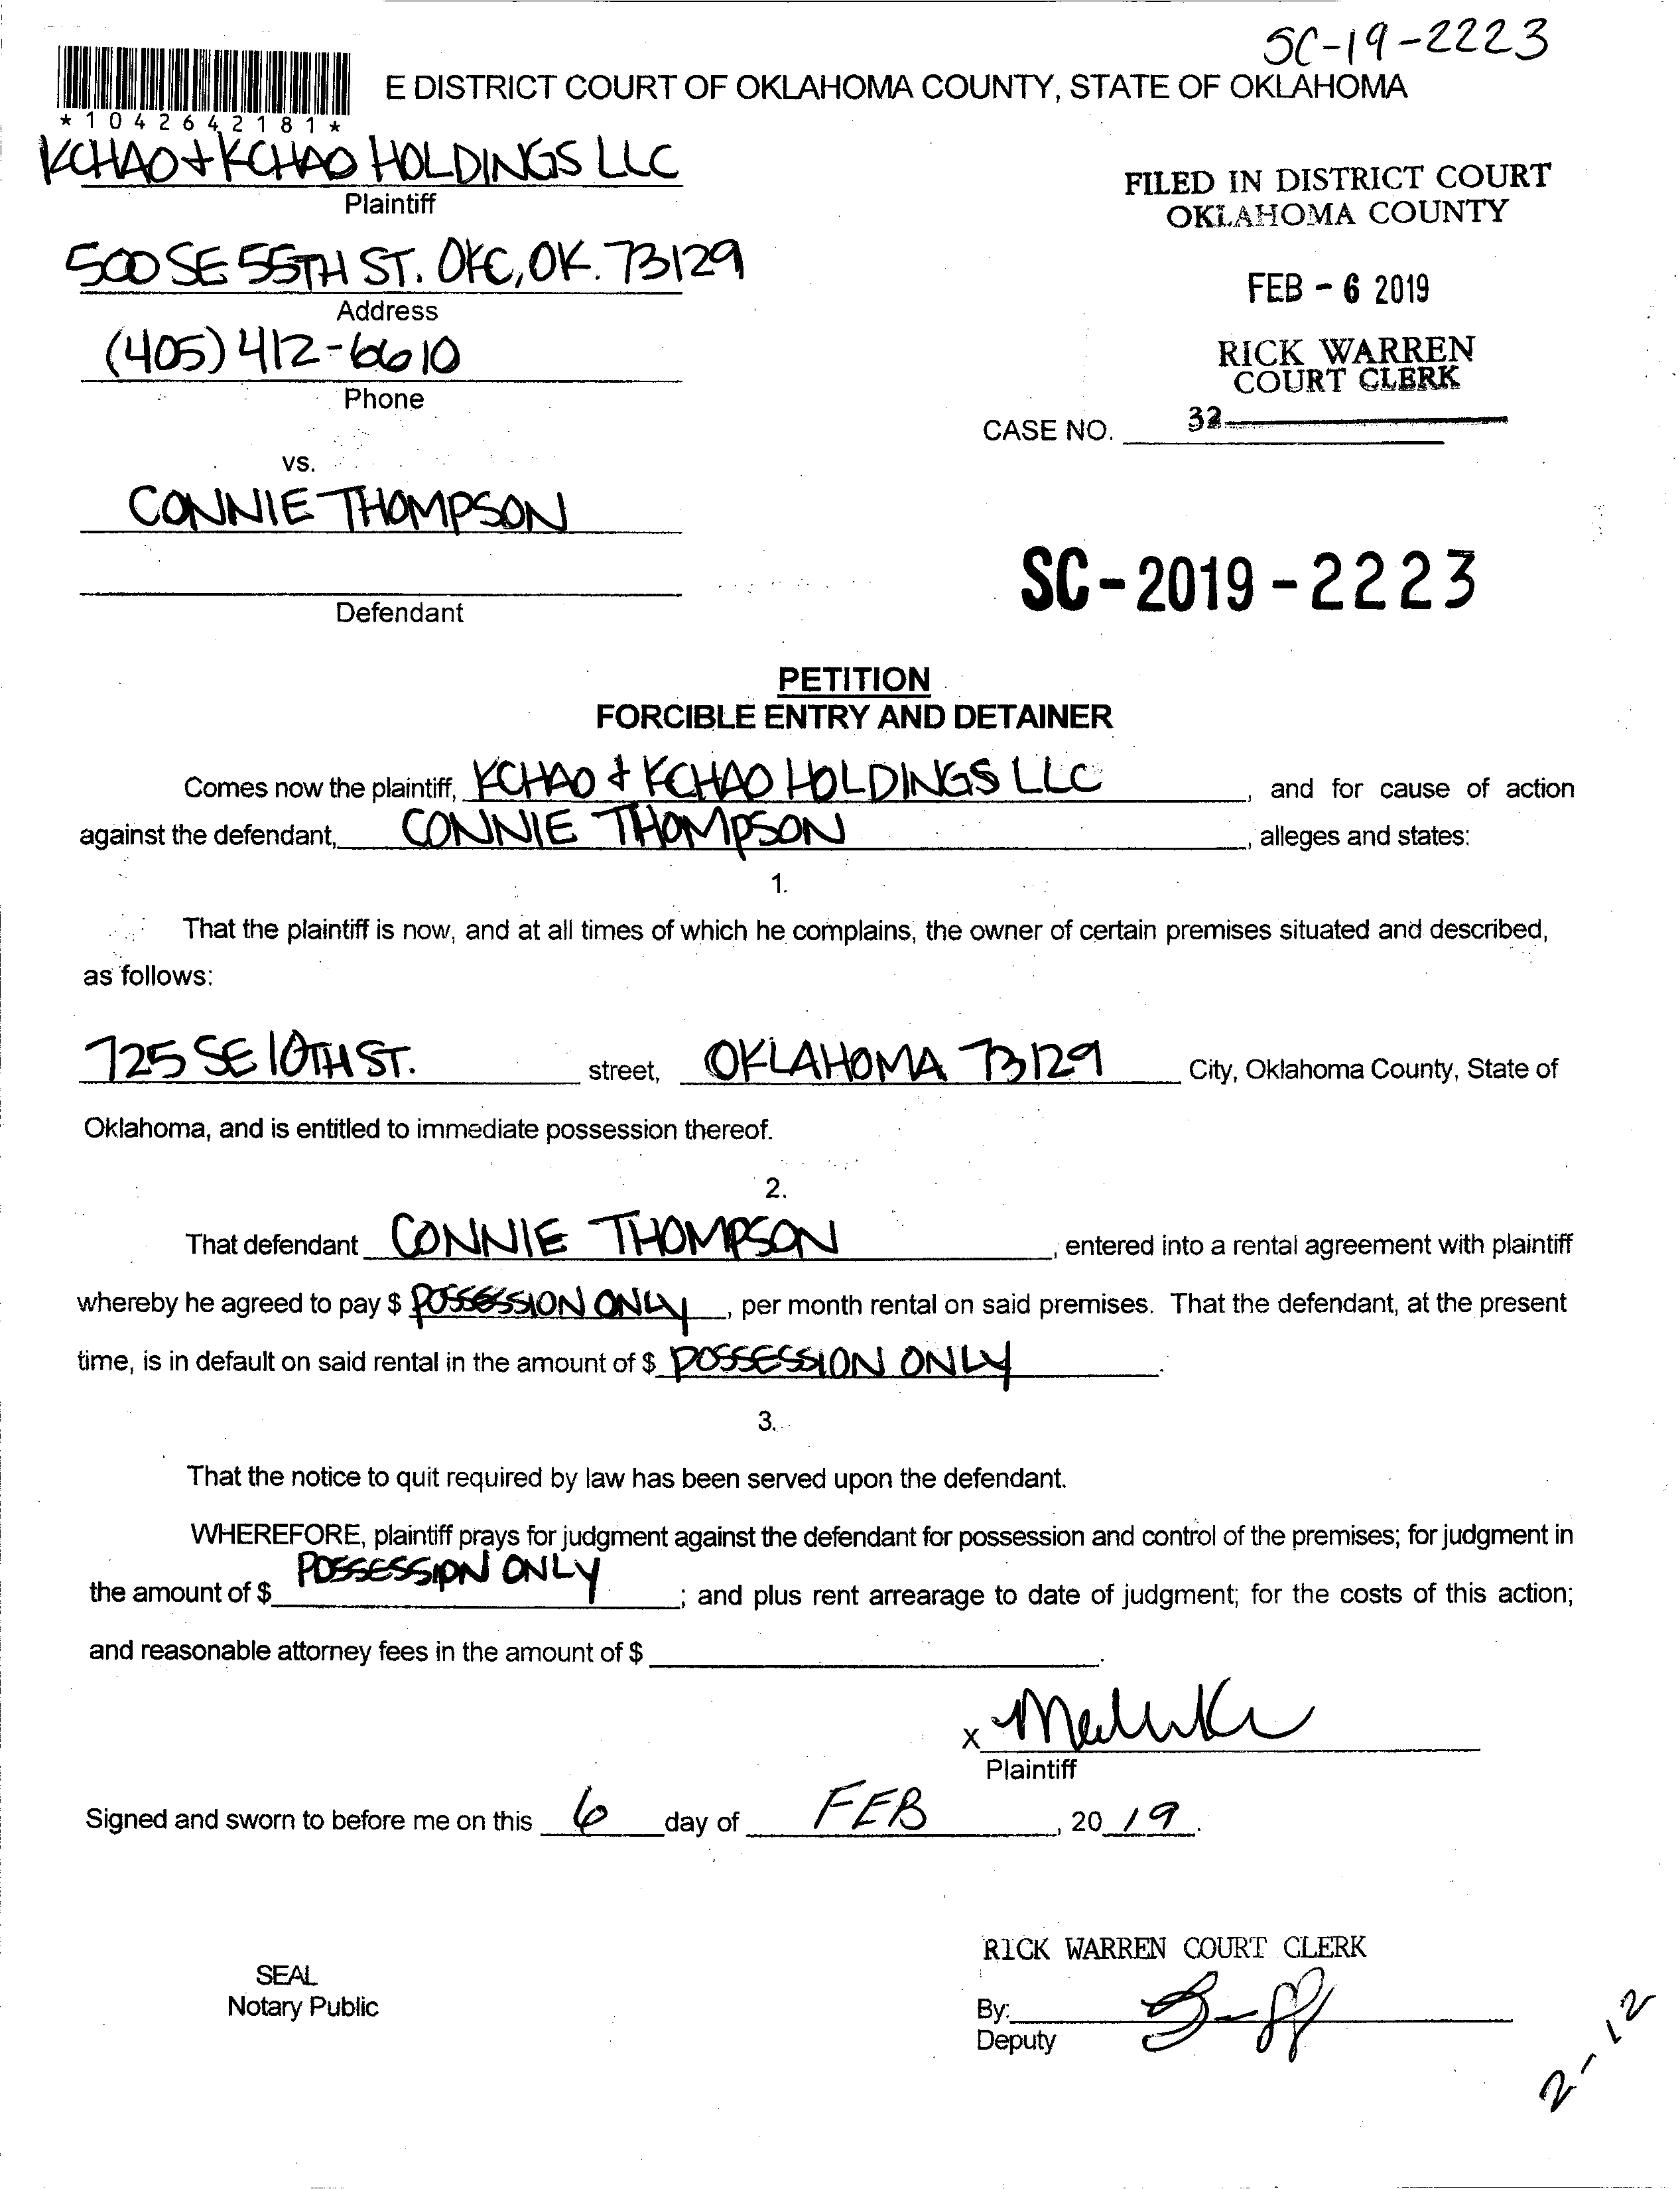 SC-19-2223
E DISTRICT COURT OF OKLAHOMA COUNTY, STATE OF OKLAHOMA
*1042642181*
KCHAO & KCHAO HOLDINGS LLC
Plaintiff
FILED IN DISTRICT COURT
OKLAHOMA COUNTY
500 SE 55TH ST. OKC, OK. 73129
Address
FEB - 6 2019
(405) 412-6610
Phone
RICK WARREN
COURT CLERK
CASE NO. 32
vs.
CONNIE THOMPSON
Defendant
SC-2019-2223
PETITION
FORCIBLE ENTRY AND DETAINER
Comes now the plaintiff, KCHAO & KCHAO HOLDINGS LLC, and for cause of action
against the defendant, CONNIE THOMPSON, alleges and states:
1.
That the plaintiff is now, and at all times of which he complains, the owner of certain premises situated and described,
as follows:
725 SE 10TH ST. street, OKLAHOMA 73129 City, Oklahoma County, State of
Oklahoma, and is entitled to immediate possession thereof.
2.
That defendant CONNIE THOMPSON, entered into a rental agreement with plaintiff
whereby he agreed to pay $ POSSESSION ONLY, per month rental on said premises. That the defendant, at the present
time, is in default on said rental in the amount of $ POSSESSION ONLY.
3.
That the notice to quit required by law has been served upon the defendant.
WHEREFORE, plaintiff prays for judgment against the defendant for possession and control of the premises; for judgment in
the amount of $ POSSESSION ONLY; and plus rent arrearage to date of judgment; for the costs of this action;
and reasonable attorney fees in the amount of $.
X
Plaintiff
Signed and sworn to before me on this 6 day of FEB, 2019.
RICK WARREN COURT CLERK
SEAL
Notary Public
By:
Deputy
2-12